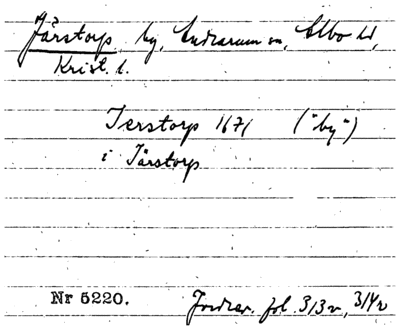 Järstorp, by, Andrarum sn, Albo hd,
Krist. l.
Ierstorp 1671 ("by")
i Järstorp
Nr 5220. Jordrev. fol. 313v, 314v